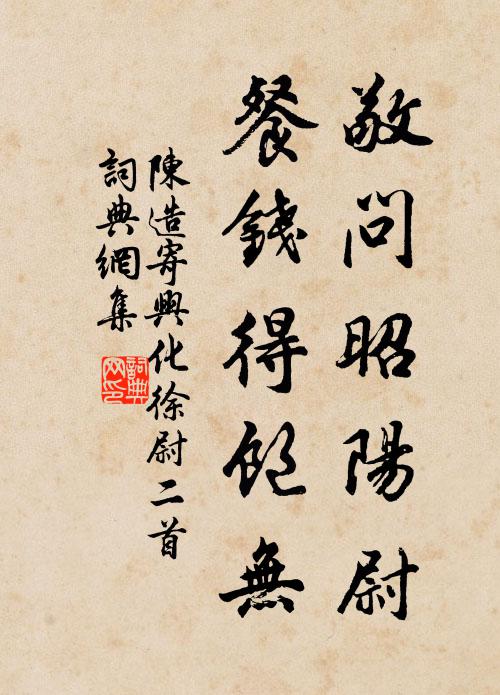 敬問昭陽尉
餐錢得飽無
陳造寄興化徐尉二首
詞典網集
詞典網印